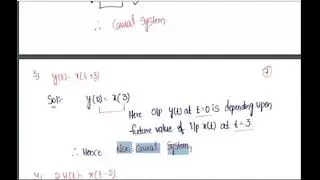 ∴ Causal System.
3) y(t) = x(t+3)
Sol:- y(0) = x(3)
Here O/p y(t) at t=0 is depending upon
future value of i/p x(t) at t=3
∴ Hence Non-Causal System.
y(t) = x(t-2)